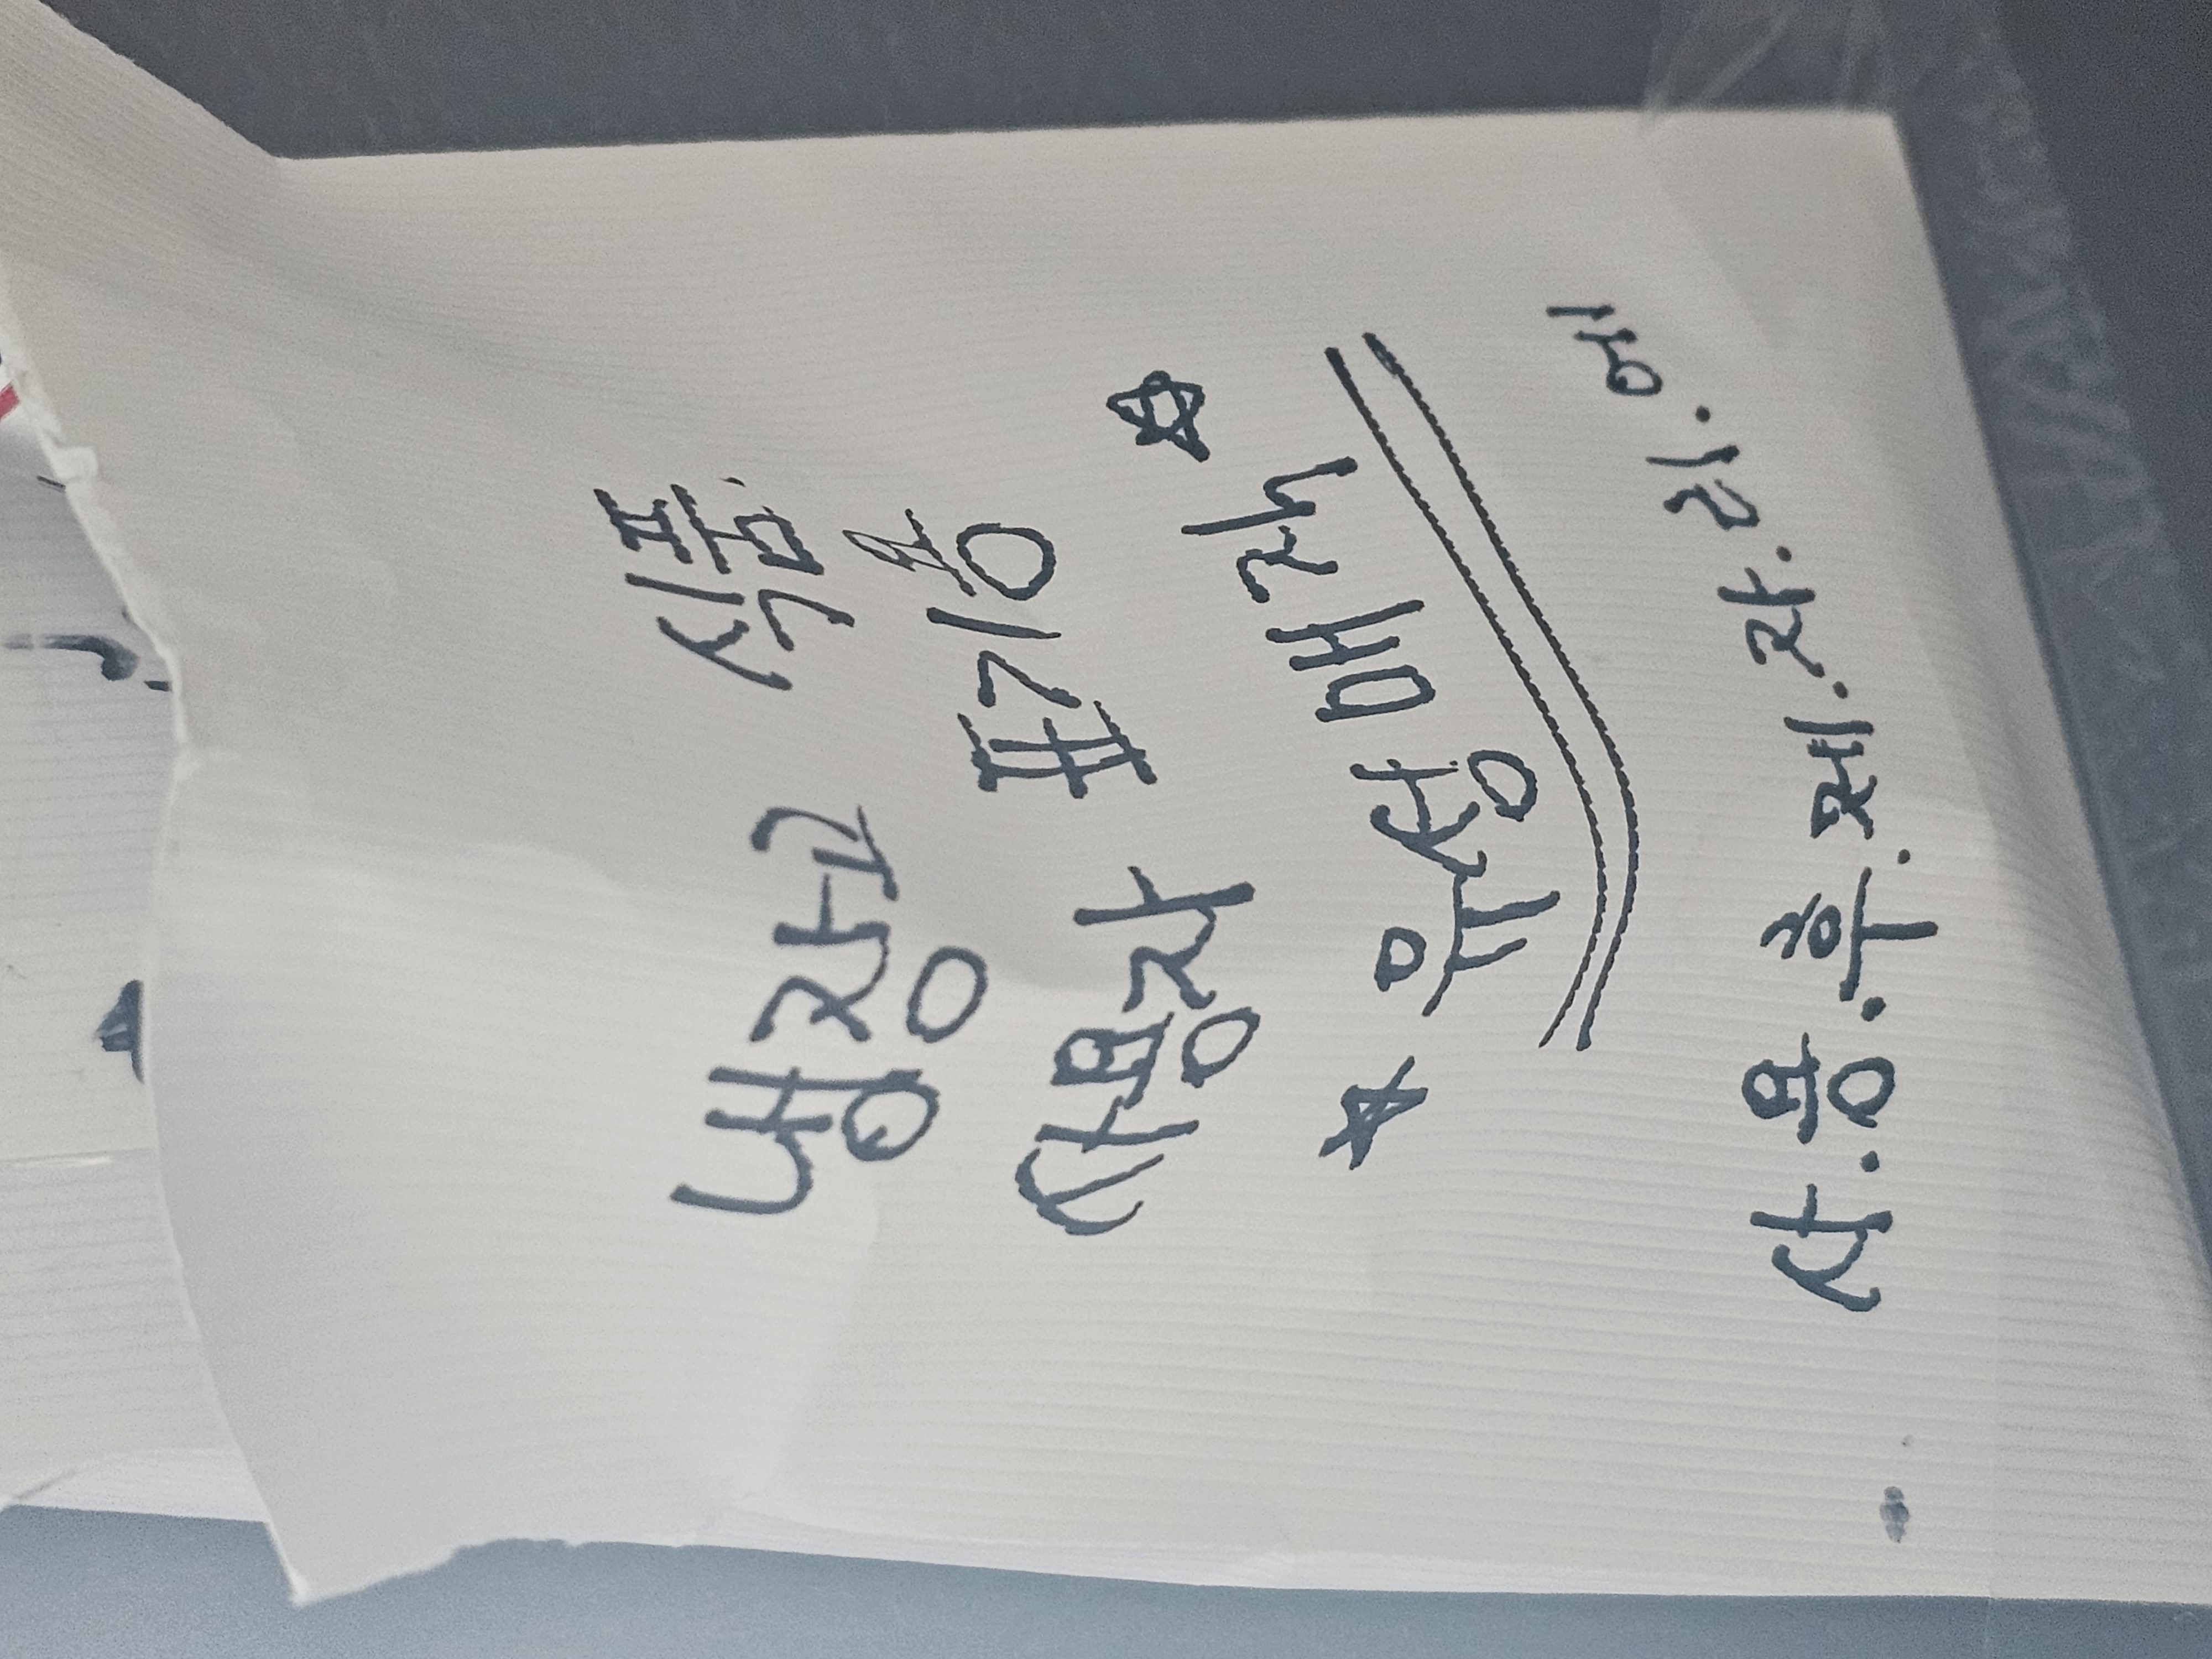 냉장고 식품.
사용자 표기용
☆ 유성매직 ☆
사.용.후.제.자.리.에